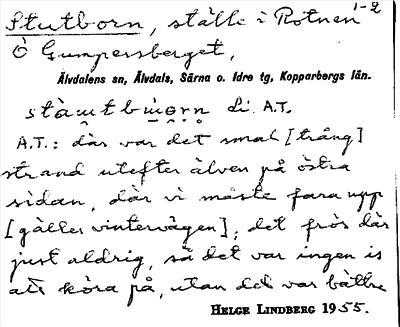 Stutborn, ställe i Rotnen 1-2
Ö Gumpersberget,
Älvdalens sn, Älvdals, Särna o. Idre tg, Kopparbergs län.
di. A.T.
A.T.: där var det smal [trång]
strand utefter älven på östra
sidan, där vi måste fara upp
[gäller vintervägen]; det frös där
just aldrig, så det var ingen is
att köra på, utan det var bättre
HELGE LINDBERG 1955.